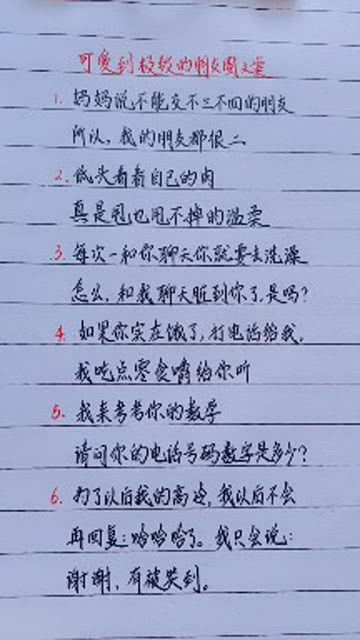 可爱到极致的朋友圈文案
1. 妈妈说,不能交不三不四的朋友
所以,我的朋友都很二
2. 低头看看自己的肉
真是甩也甩不掉的温柔
3. 每次一和你聊天你就要去洗澡
怎么,和我聊天脏到你了,是吗?
4. 如果你实在饿了,打电话给我,
我吃点零食嚼给你听
5. 我来考考你的数学
请问你的电话号码数字是多少?
6. 为了以后我的高冷,我以后不会
再回复:哈哈哈了。我只会说:
谢谢,有被笑到。